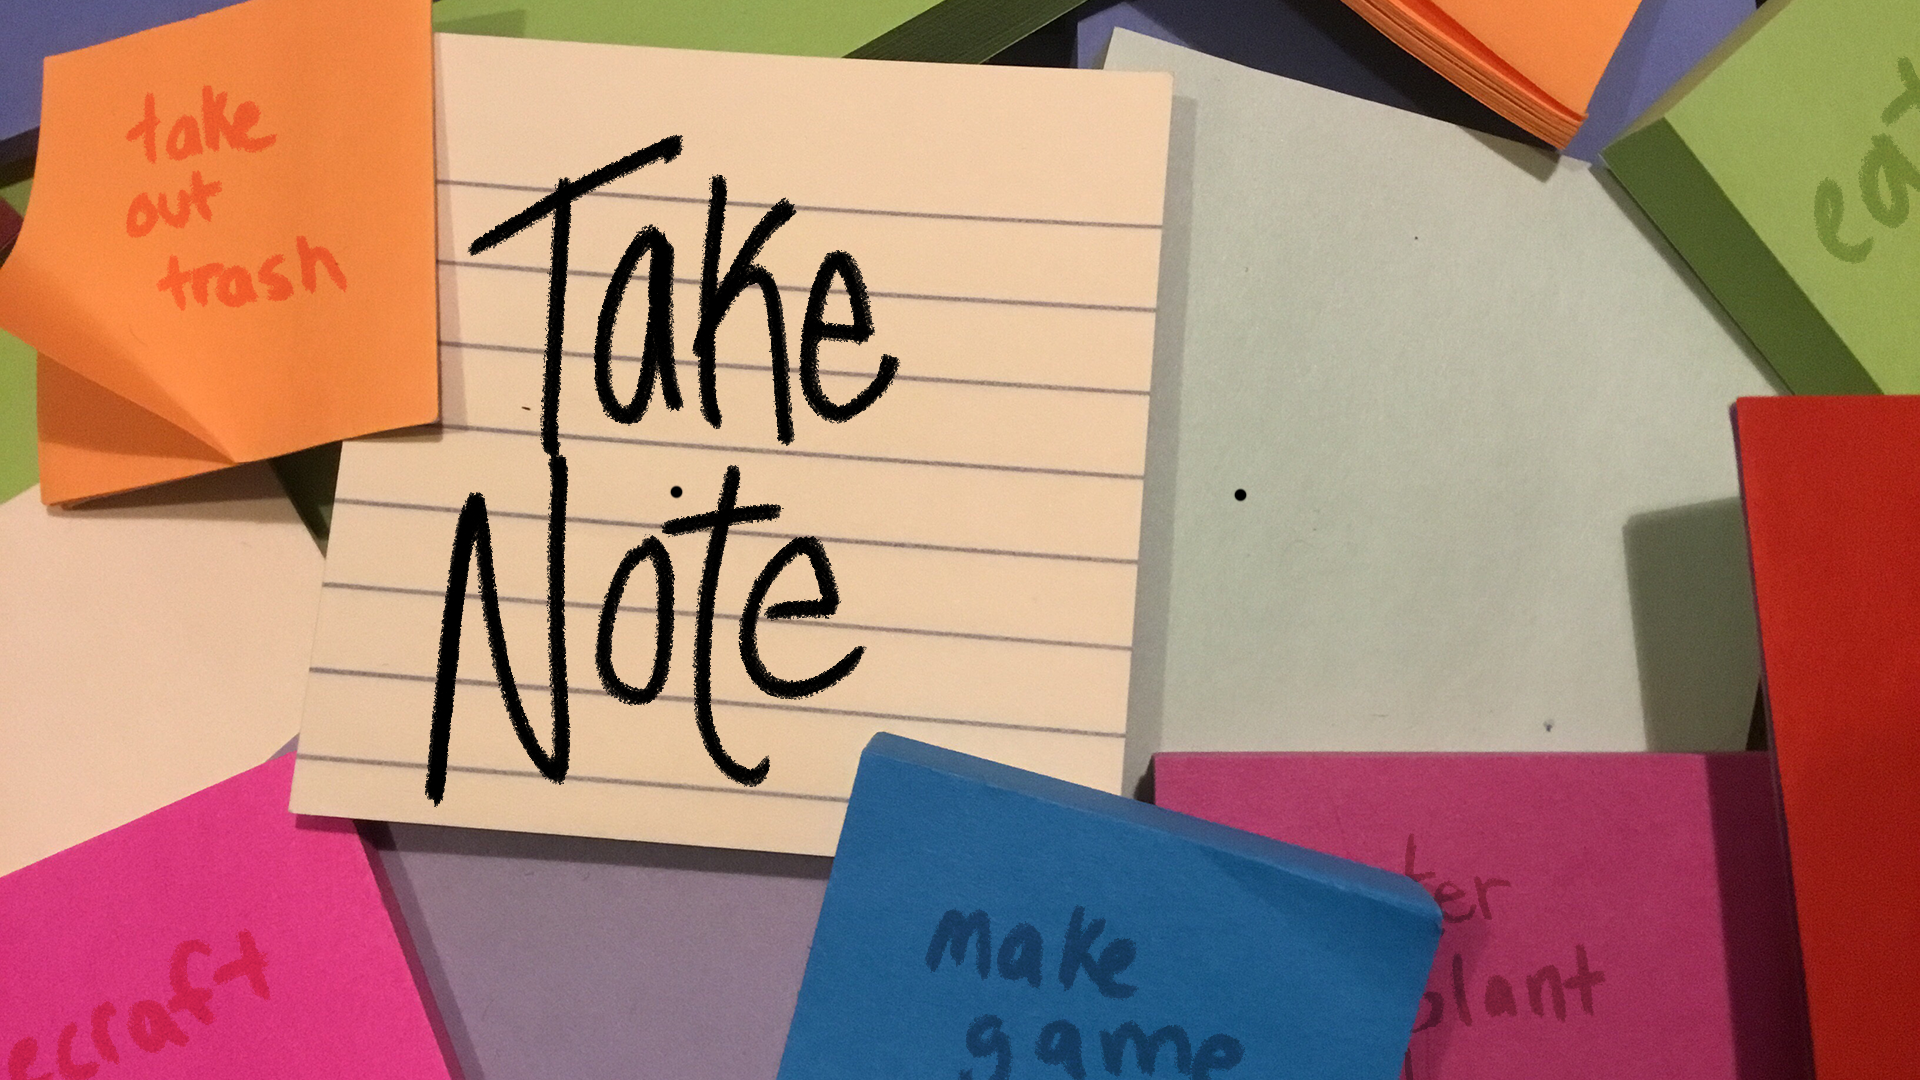 take
out
trash
Take
Note
eat
make
game
plant